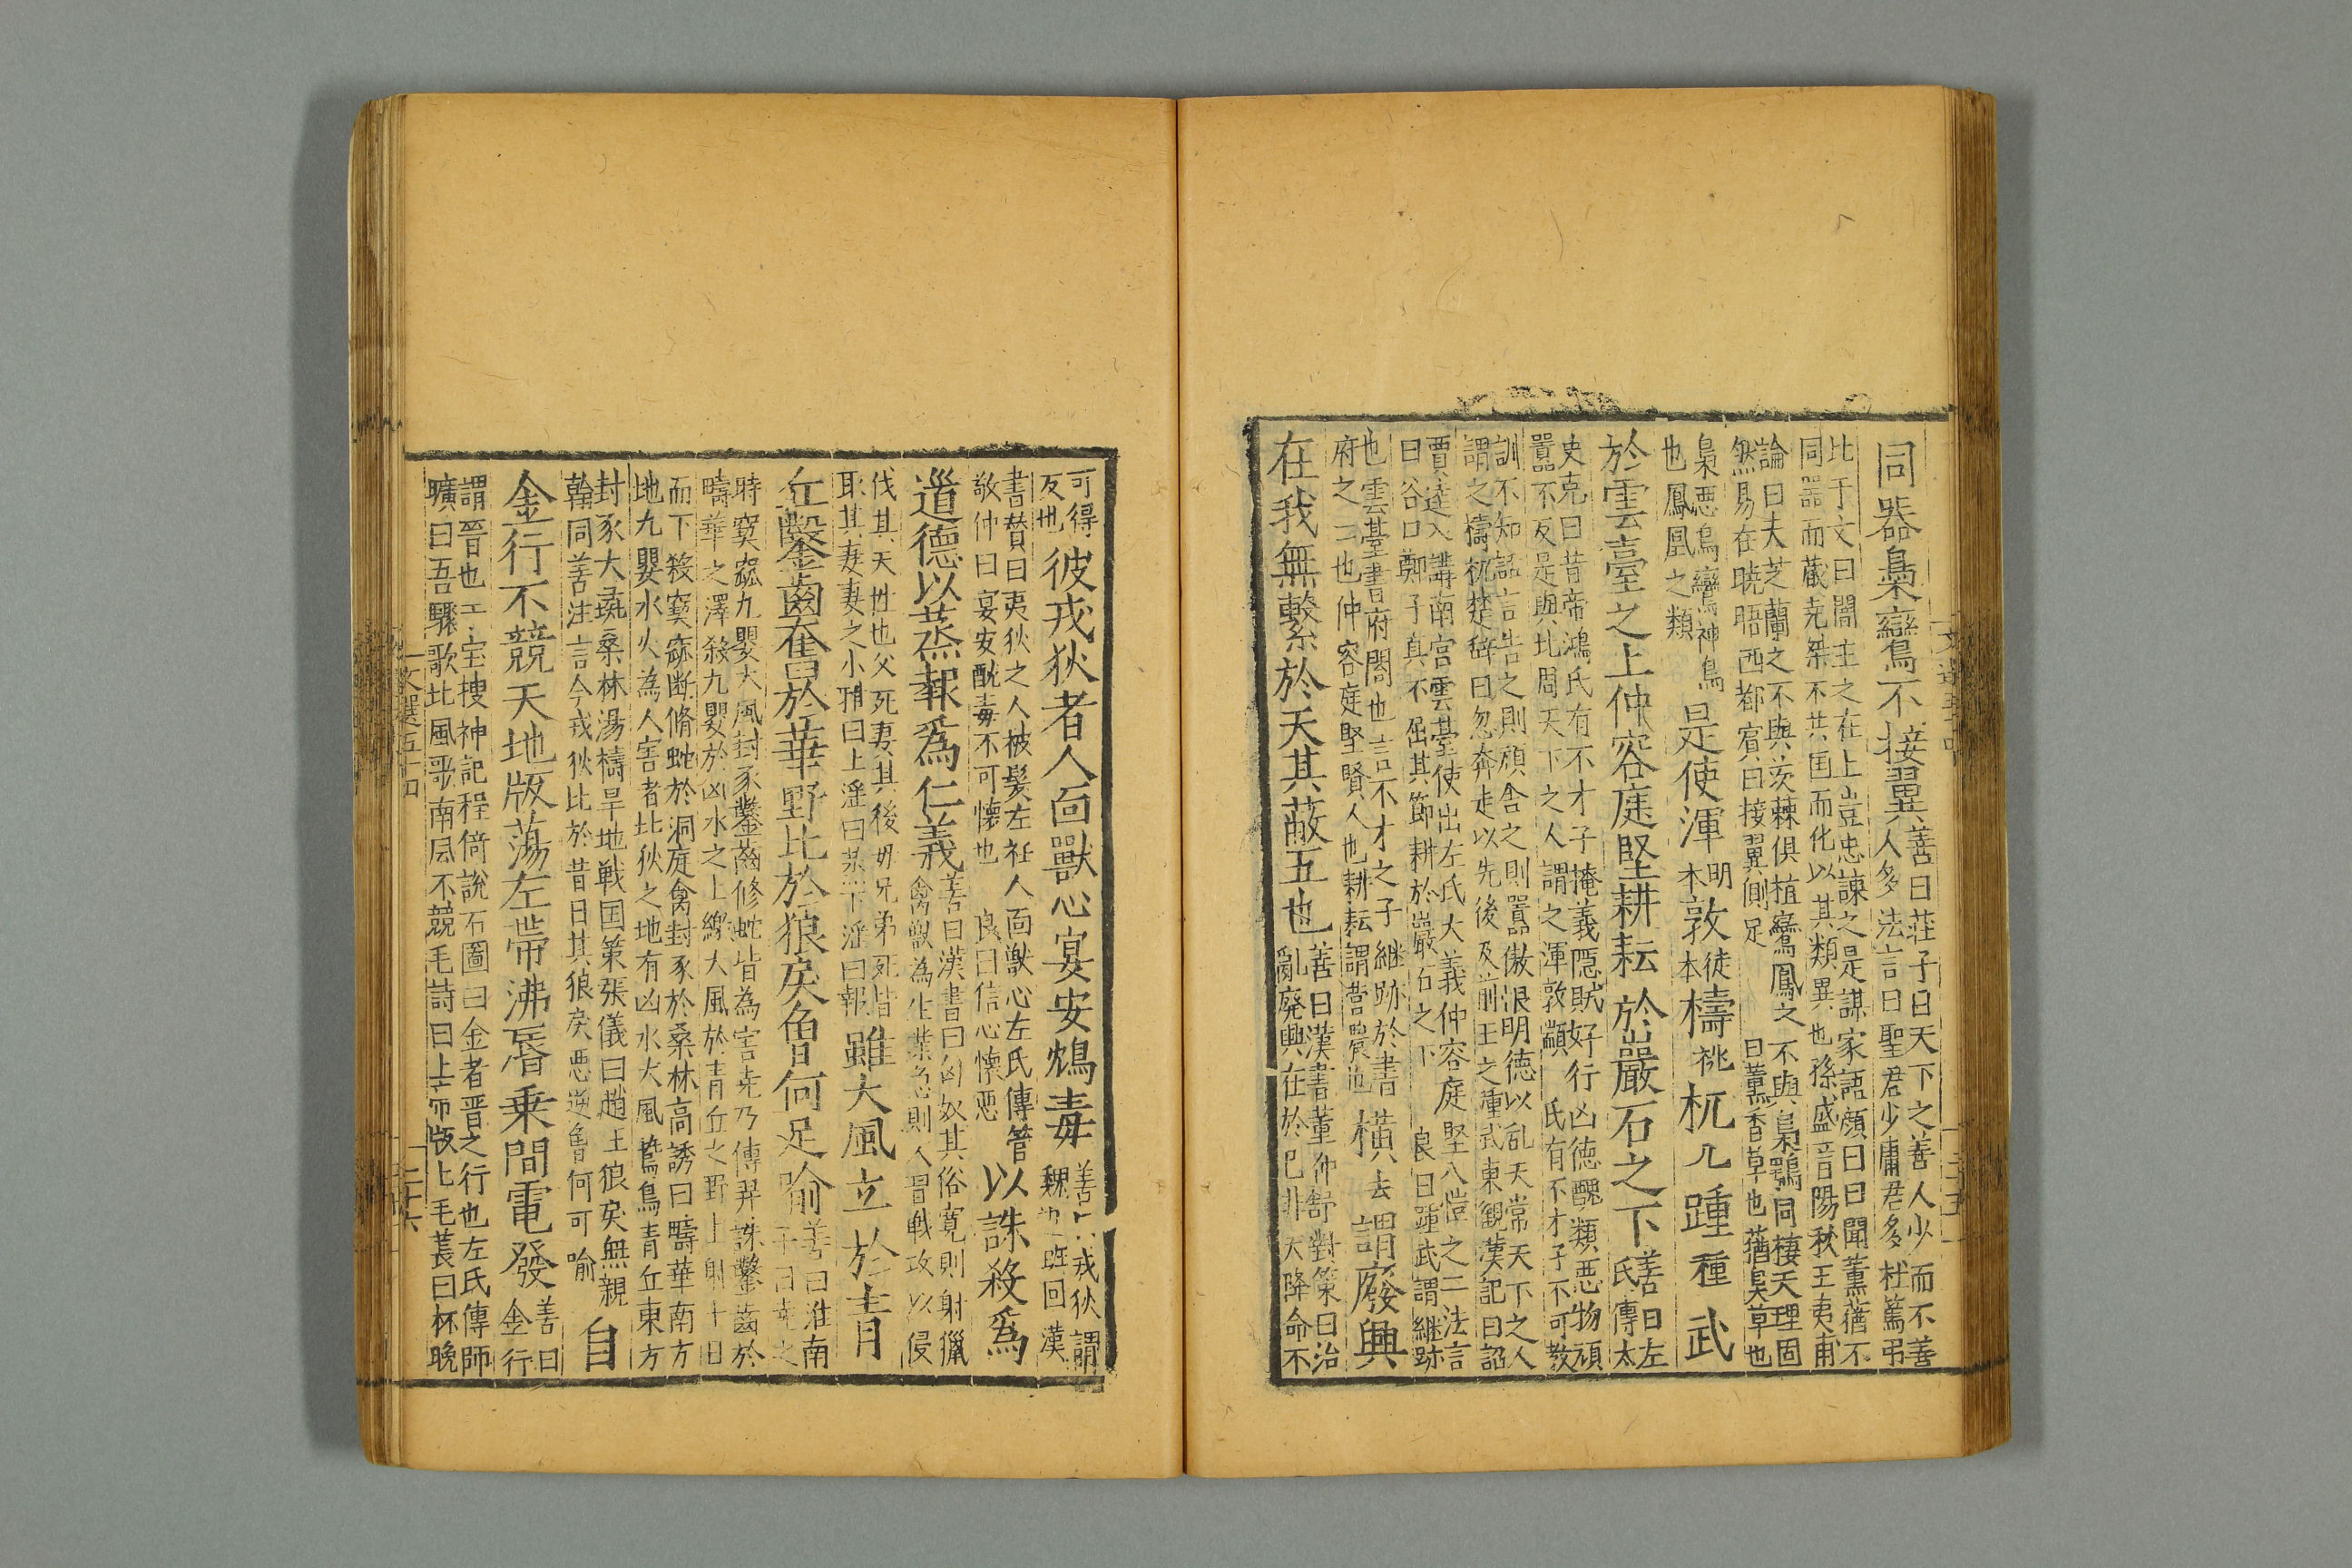 同器梟鸞不接翼善曰莊子曰天下之善人少而不善
人多法言曰聖君少庸君多杜篤弔
比于文曰闇主之在上豈忠諫之是謀家語顔曰曰聞薰蕕不
同器而蔵尭桀不共国而化以其類異也孫盛晉陽秋王夷甫
論曰夫芝蘭之不與茨棘俱植鸞鳳之不與梟鴞同棲天理固
然易在暁晤西都賓曰接翼側足
曰薫香草也蕕臭草也
梟悪鳥鸞神鳥
也鳳凰之類
是使渾明本敦徒本檮祧杌兀踵種武
於雲臺之上仲容庭堅耕耘於巖石之下善曰左氏傳太
史克曰昔帝鴻氏有不才子掩義隠賊好行凶徳醜類悪物頑
嚚不友是與比周天下之人謂之渾敦顓氏有不才子不可教
訓不知話言告之則頑舎之則嚚傲很明徳以乱天常天下之人
謂之檮杌楚辞曰忽奔走以先後及前王之踵武東観漢記曰詔
賈逵入講南宮雲臺使出左氏大義仲容庭堅八愷之二法言
曰谷口鄭子真不屈其節耕於巖石之下
良曰踵武謂継跡
也雲臺書府閤也言不才之子継跡於書
府之二也仲容庭堅賢人也耕耘謂营農也
橫去謂廢興
在我無繫於天其蔽五也善曰漢書董仲舒對策曰治
亂廢興在於已非天降命不
可得
反也
彼戎狄者人面獸心宴安鴆毒善曰戎狄謂
魏也班回漢
書賛曰夷狄之人被髪左衽人面獣心左氏傳管
敬仲曰宴安酖毒不可懐也良曰信心懐悪
以誅殺爲
道德以蒸報爲仁義善曰漢書曰匈奴其俗寛則射獵
禽獣為生業急則人習戦攻以侵
伐其天性也父死妻其後母兄弟死皆
取其妻妻之小雅曰上淫曰蒸下淫曰報
雖大風立於青
丘鑿齒奮於華野比於狼戾曾何足喻善曰淮南
子曰尭之
時窫窳九嬰大風封豕鑿齒修蛇皆為害尭乃傳羿誅鑿齒於
疇華之澤殺九嬰於凶水之上繳大風於青丘之野上射十日
而下殺窫窳断脩蛇於洞庭禽封豕於桑林高誘曰疇華南方
地九嬰水火為人害者北狄之地有凶水大風鷙鳥青丘東方
封豕大豕桑林湯檮旱地戦国策張儀曰趙王狼戾無親
翰同善注言今戎狄比於昔日其狼戾悪逆曾何可喻
自
金行不競天地版蕩左帶沸脣乗間電發善曰
金行
謂晉也干宝搜神記程倚説石圖曰金者晉之行也左氏傳師
曠曰吾驟歌北風歌南風不競毛詩曰上帝版上毛萇曰杯晚
文選五十四
二十六